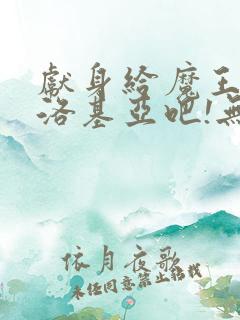 獻身給魔王
洛基亞吧!無
依月夜歌
未任同意禁止轉載